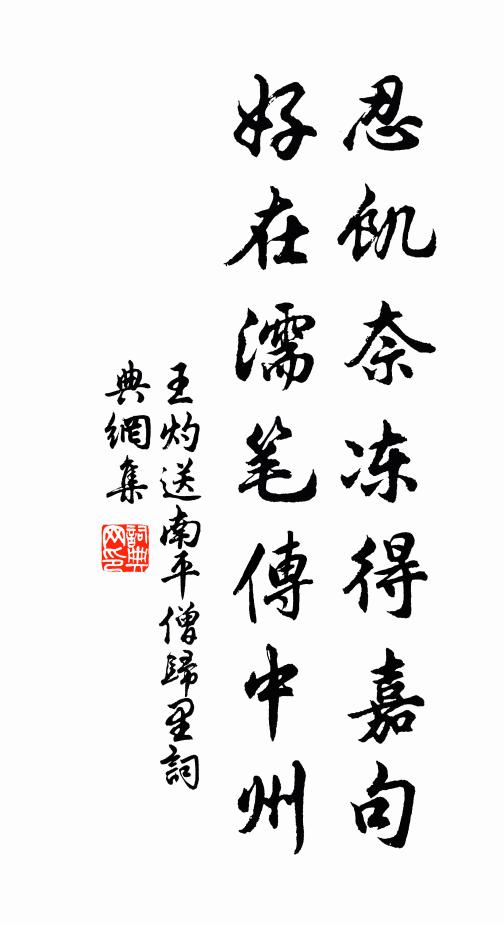 忍飢奈冻得嘉句
好在濡笔傳中州
王灼送南平僧歸里詞
典網集
詞典網印